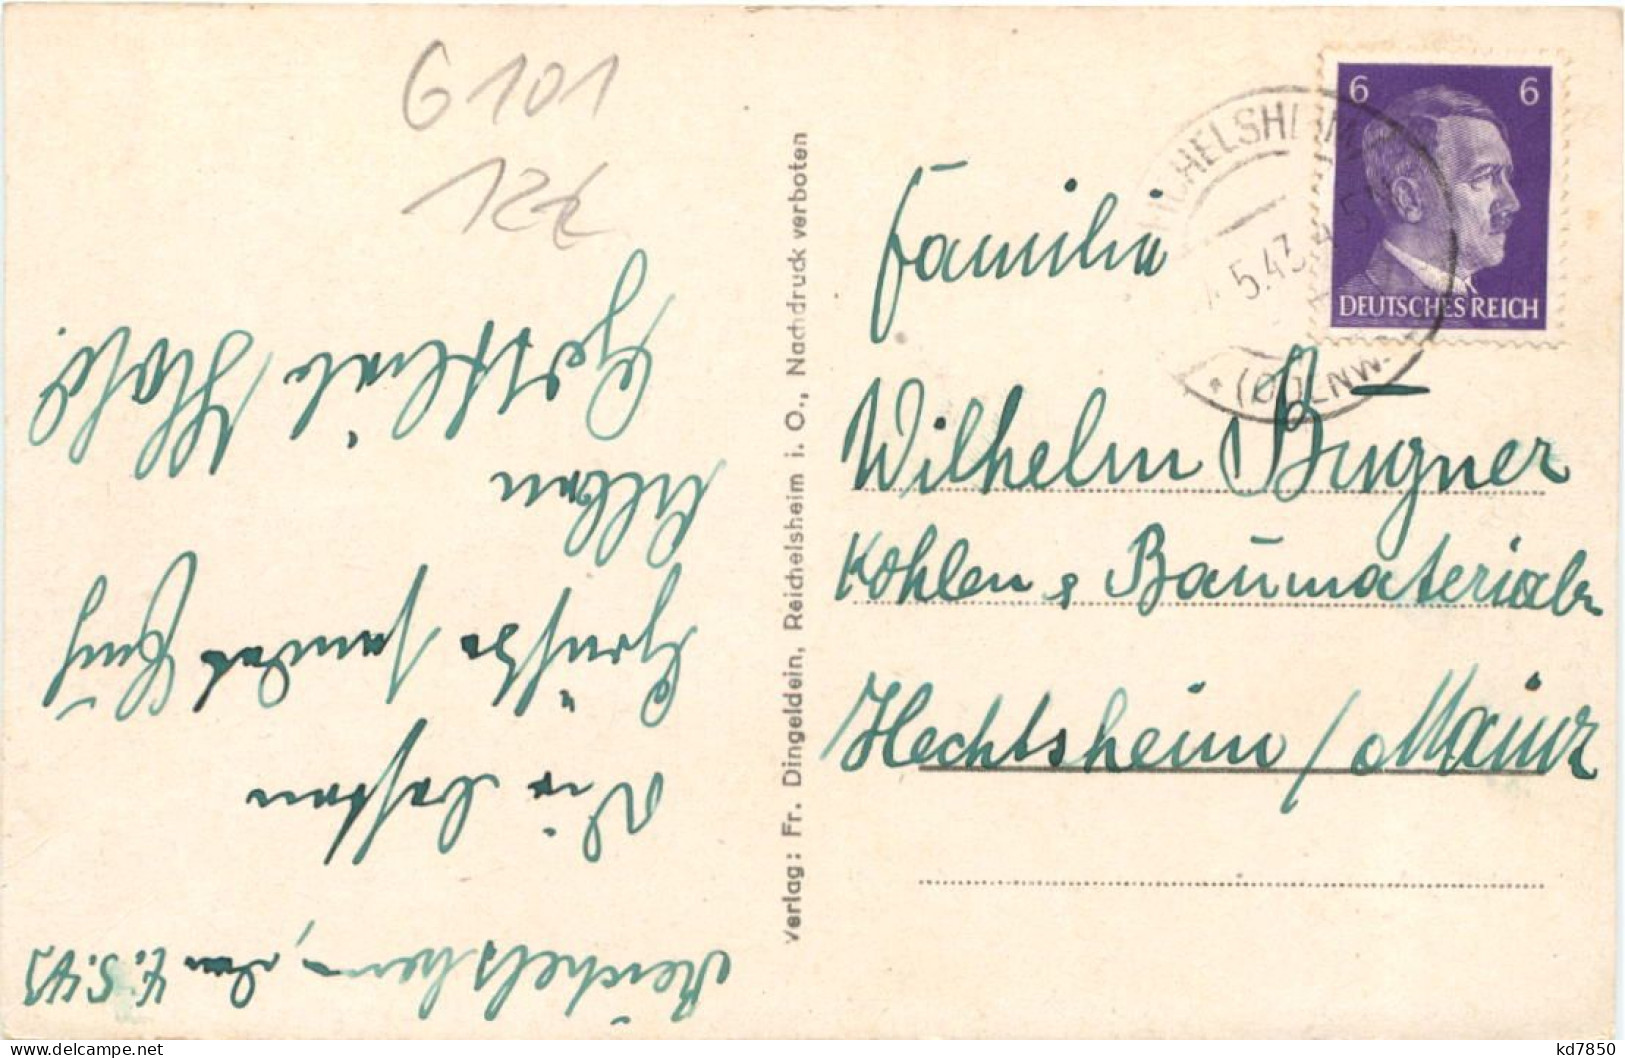 G 101
12
Reichelsheim, den 4.5.43
Die besten
Grüße sendet Euch
lieben
Gottlieb Hold.
Verlag: Fr. Dingeldein, Reichelsheim i. O., Nachdruck verboten
6 6
DEUTSCHES REICH
ICHELSHEIM
5.43
(ODENW.
Familie
Wilhelm Bugner
Kohlen & Baumaterialen
Hechtsheim / Mainz
kd7850